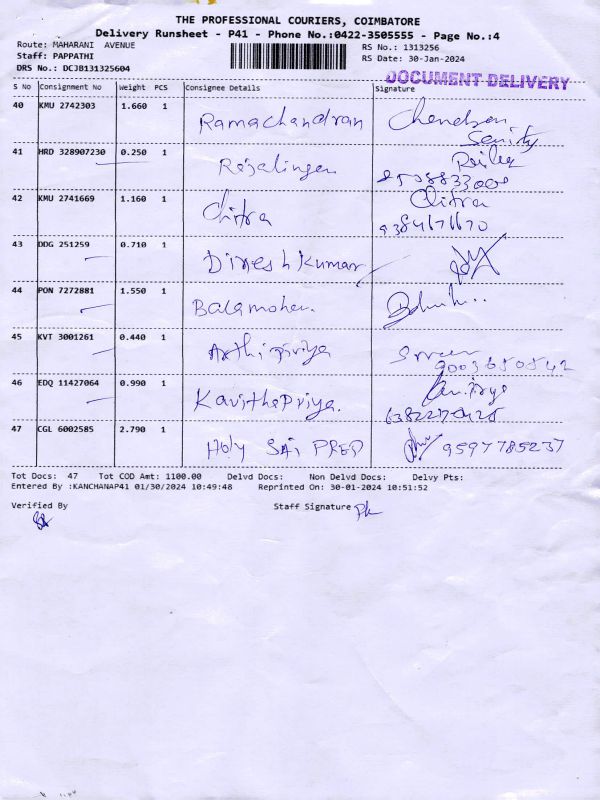 THE PROFESSIONAL COURIERS, COIMBATORE
Delivery Runsheet - P41 - Phone No.:0422-3505555 - Page No.:4
Route: MAHARANI AVENUE RS No.: 1313256
Staff: PAPPATHI RS Date: 30-Jan-2024
DRS No.: DCJB131325604
DOCUMENT DELIVERY
S No Consignment No Weight PCS Consignee Details Signature
40 KMU 2742303 1.660 1 Ramachandran
41 HRD 328907230 0.250 1
42 KMU 2741669 1.160 1 Chitra Chitra
43 DDG 251259 0.710 1 Dinesh Kumar
44 PON 7272881 1.550 1 Balamohan.
45 KVT 3001261 0.440 1 Arthipiriya
9003650542
46 EDQ 11427064 0.990 1 Kavitha Priya.
47 CGL 6002585 2.790 1 Holy SAi PRED 9597785237
Tot Docs: 47 Tot COD Amt: 1100.00 Delvd Docs: Non Delvd Docs: Delvy Pts:
Entered By :KANCHANAP41 01/30/2024 10:49:48 Reprinted On: 30-01-2024 10:51:52
Verified By Staff Signature